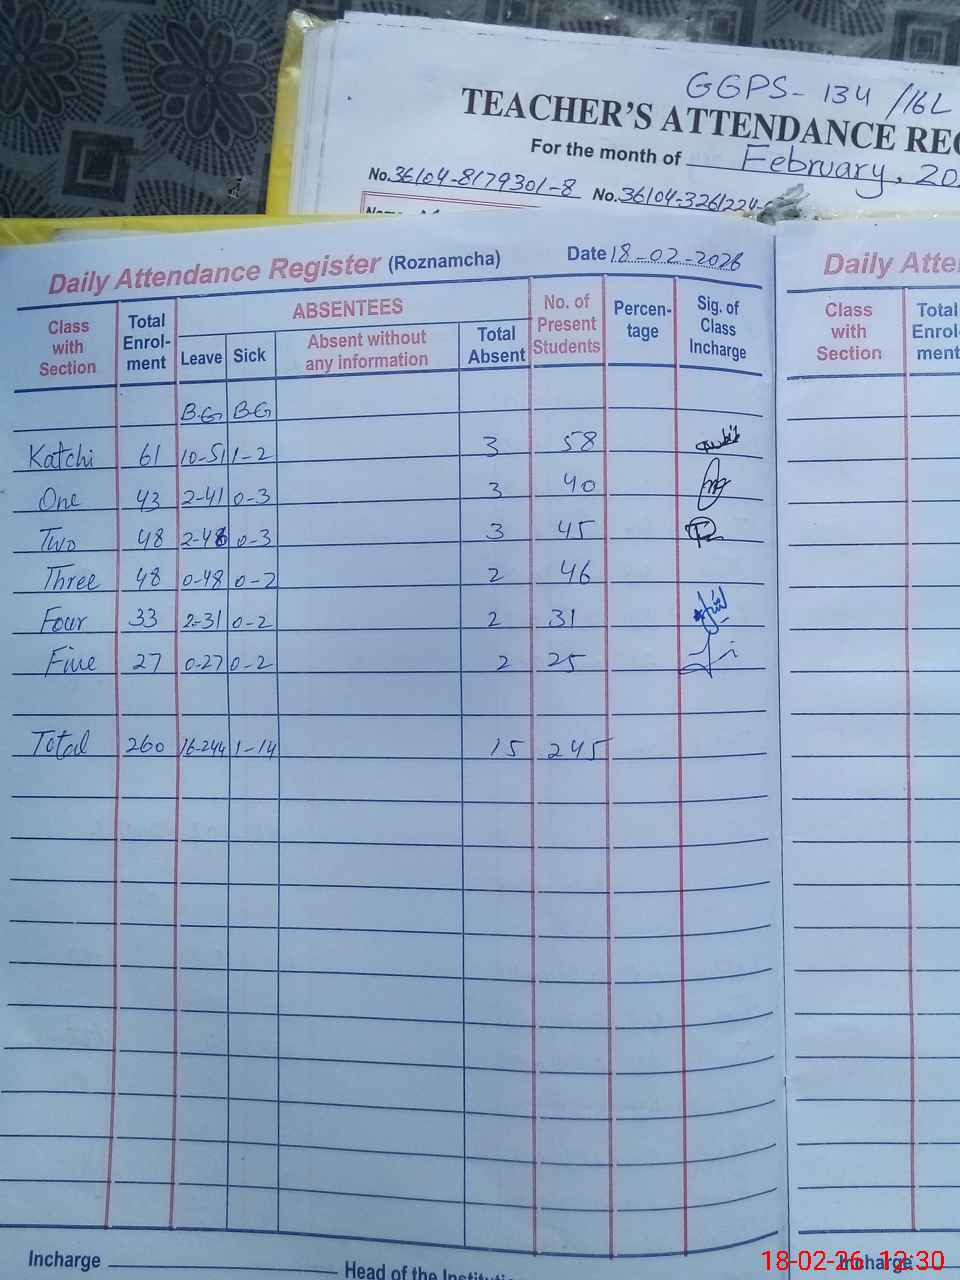 GGPS- 134 /16L
TEACHER'S ATTENDANCE REG
For the month of February, 20
No. 36104-8179301-8 No. 36104-3261224-
Daily Attendance Register (Roznamcha) Date 18-02-2026
Class with Section Total Enrol-ment ABSENTEES No. of Present Students Percen-tage Sig. of Class Incharge
Leave Sick Absent without any information Total Absent
B-G B-G
Katchi 61 10-51 1-2 3 58
One 43 2-41 0-3 3 40
Two 48 2-46 0-3 3 45
Three 48 0-48 0-2 2 46
Four 33 2-31 0-2 2 31
Five 27 0-27 0-2 2 25
Total 260 16-244 1-14 15 245
Incharge Head of the Instituti
Daily Atte
Class with Section Total Enrol-ment
Incharge
18-02-26 12:30